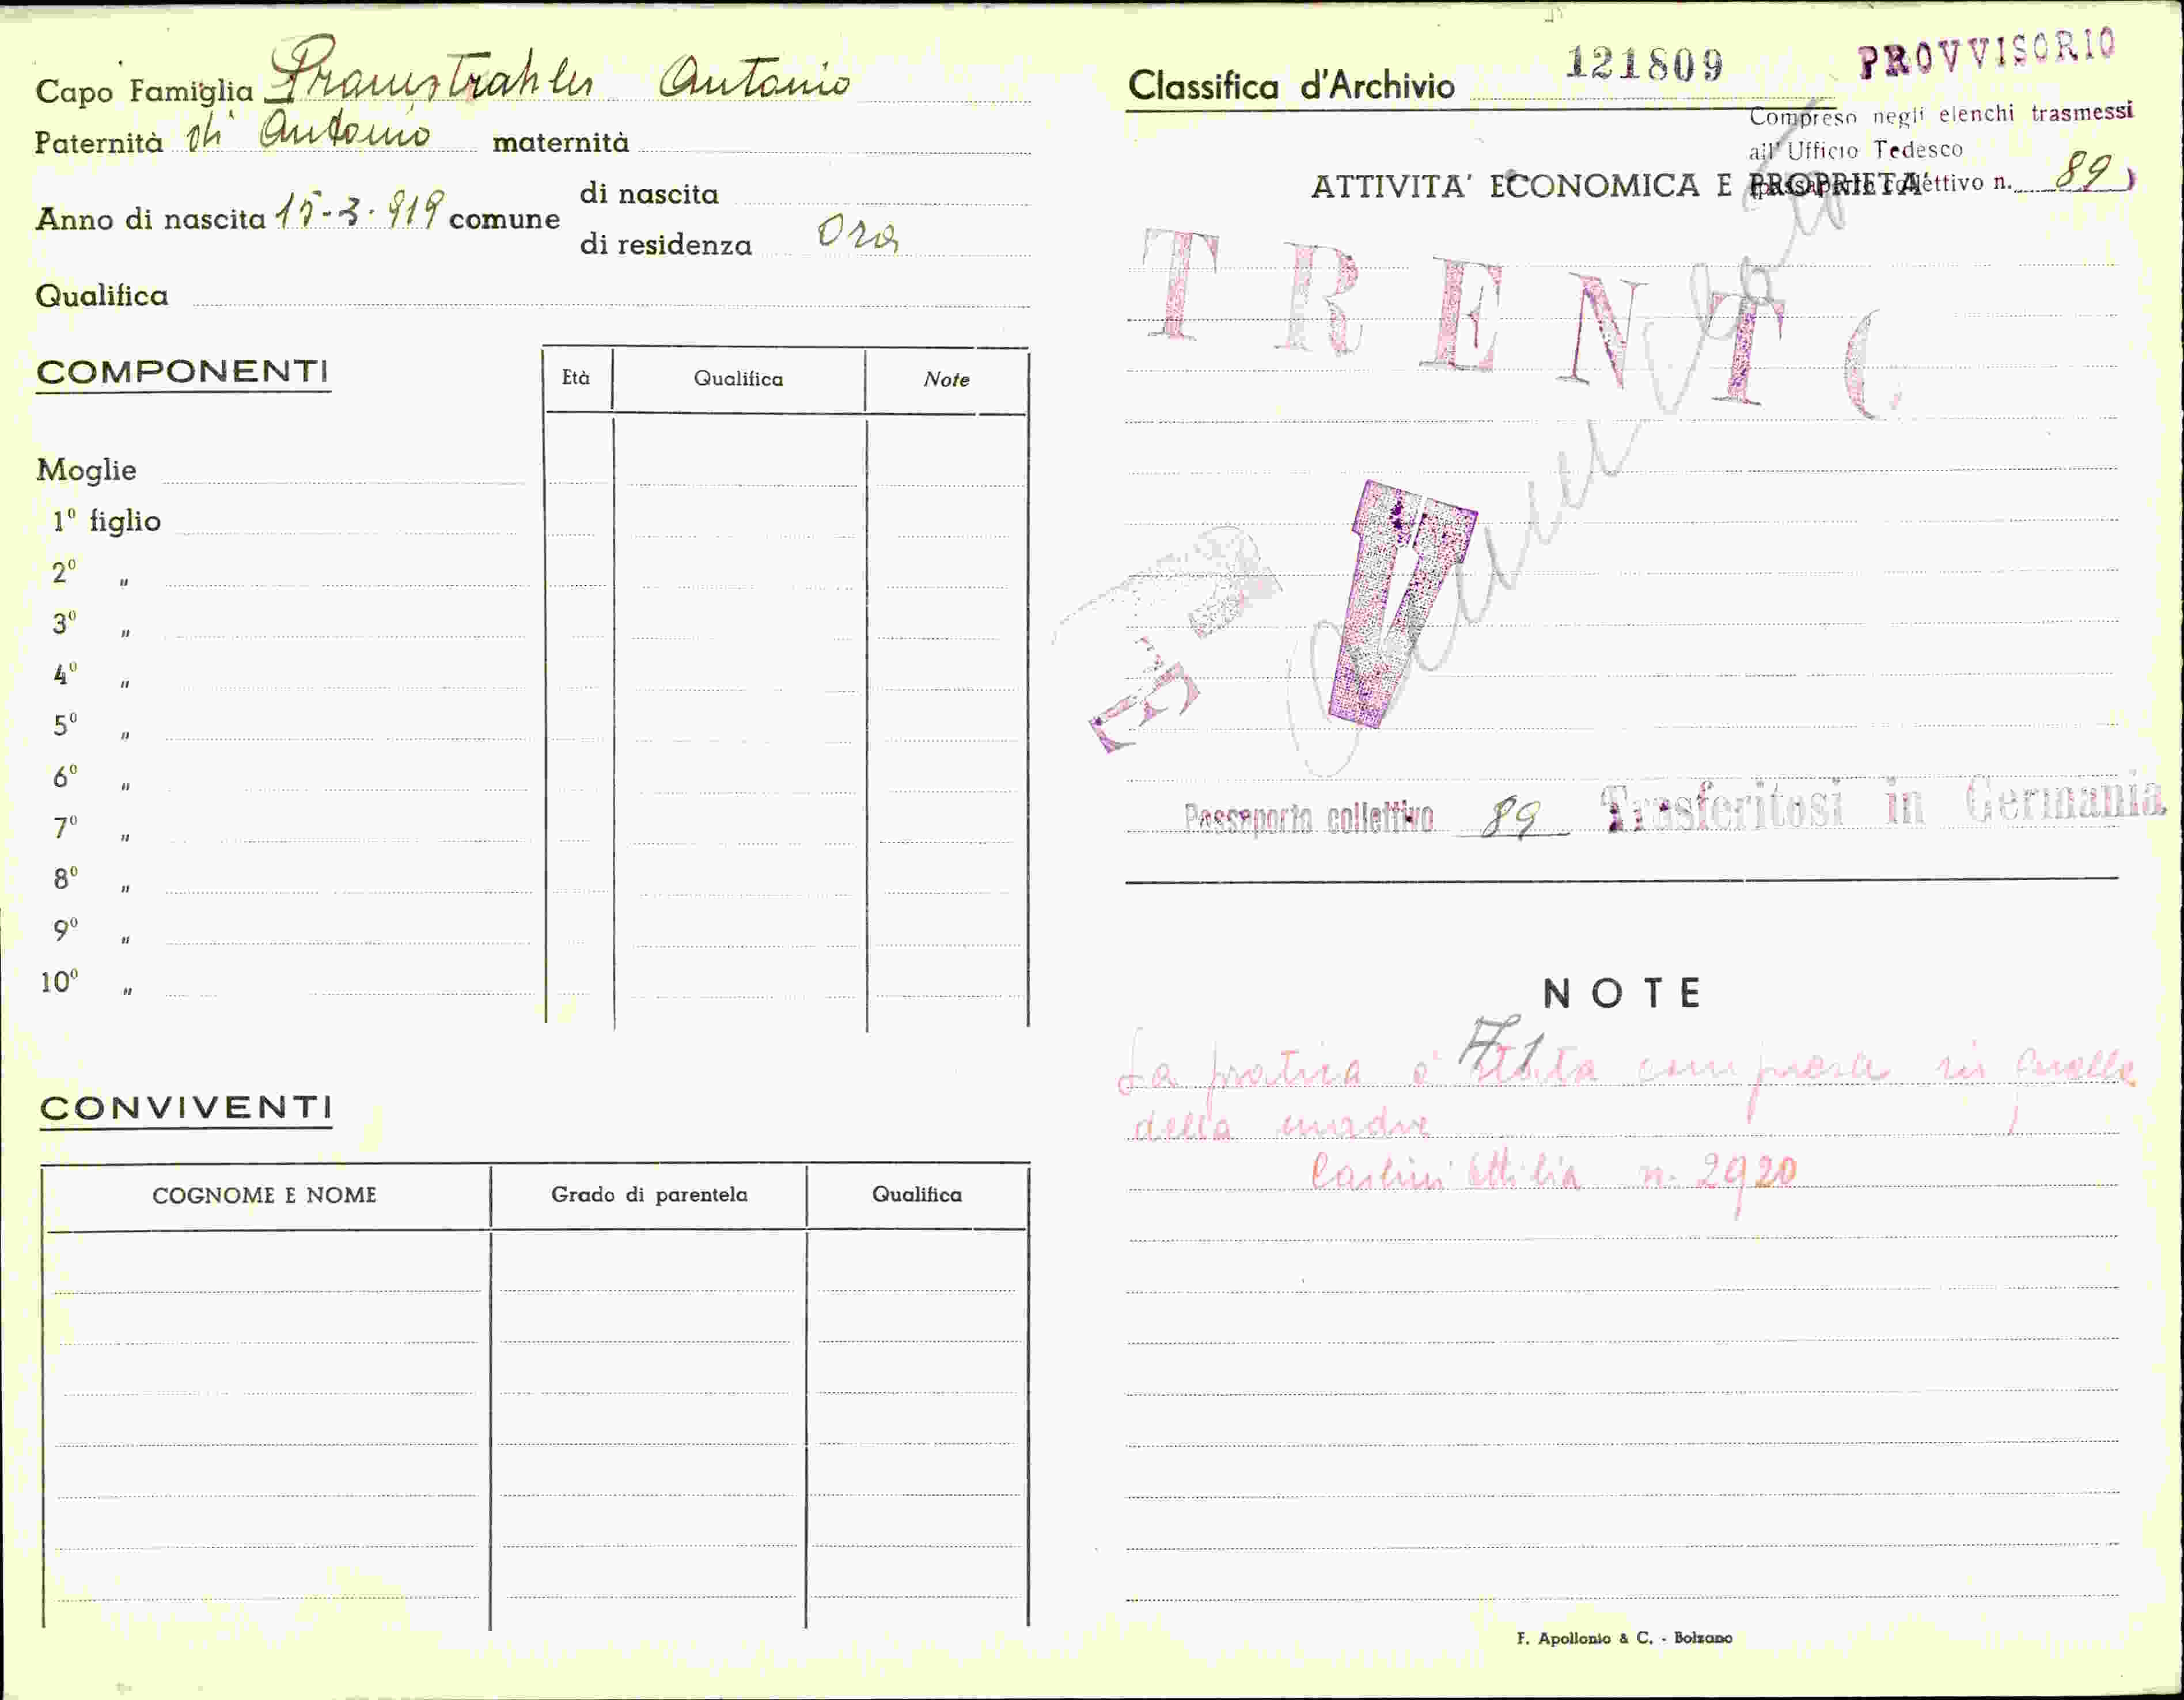 Capo Famiglia Pramstrahler Antonio
Paternità di Antonio maternità
Anno di nascita 15-3-919 comune
di nascita
di residenza Ora
Qualifica
COMPONENTI
Età Qualifica Note
Moglie
1º figlio
2º "
3º "
4º "
5º "
6º "
7º "
8º "
9º "
10º "
CONVIVENTI
COGNOME E NOME Grado di parentela Qualifica
Classifica d'Archivio 121809
PROVVISORIO
Compreso negli elenchi trasmessi
all'Ufficio Tedesco
(passaporto collettivo n. 89)
ATTIVITA' ECONOMICA E PROPRIETA'
TRENTO
V
Passaporto collettivo 89 Trasferitosi in Germania
NOTE
71
La pratica è stata compresa in quella
della madre
Carlini Attilia n. 2920
F. Apollonio & C. - Bolzano